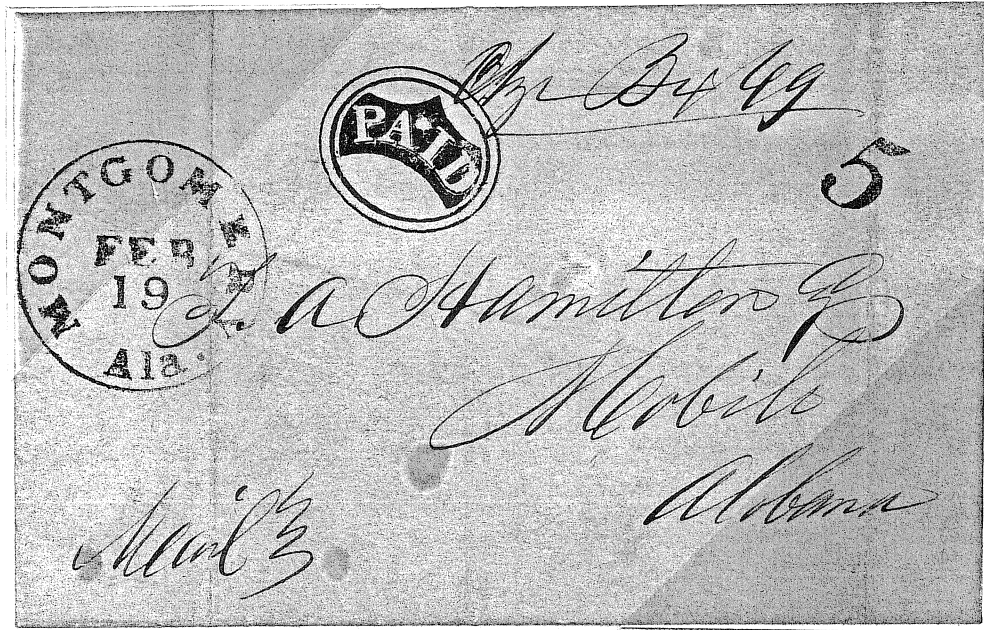 Chg Bx 49
PAID
5
MONTGOMERY
FEB
19
Ala.
T. A Hamilton Esq
Mobile
Alabama
Mail